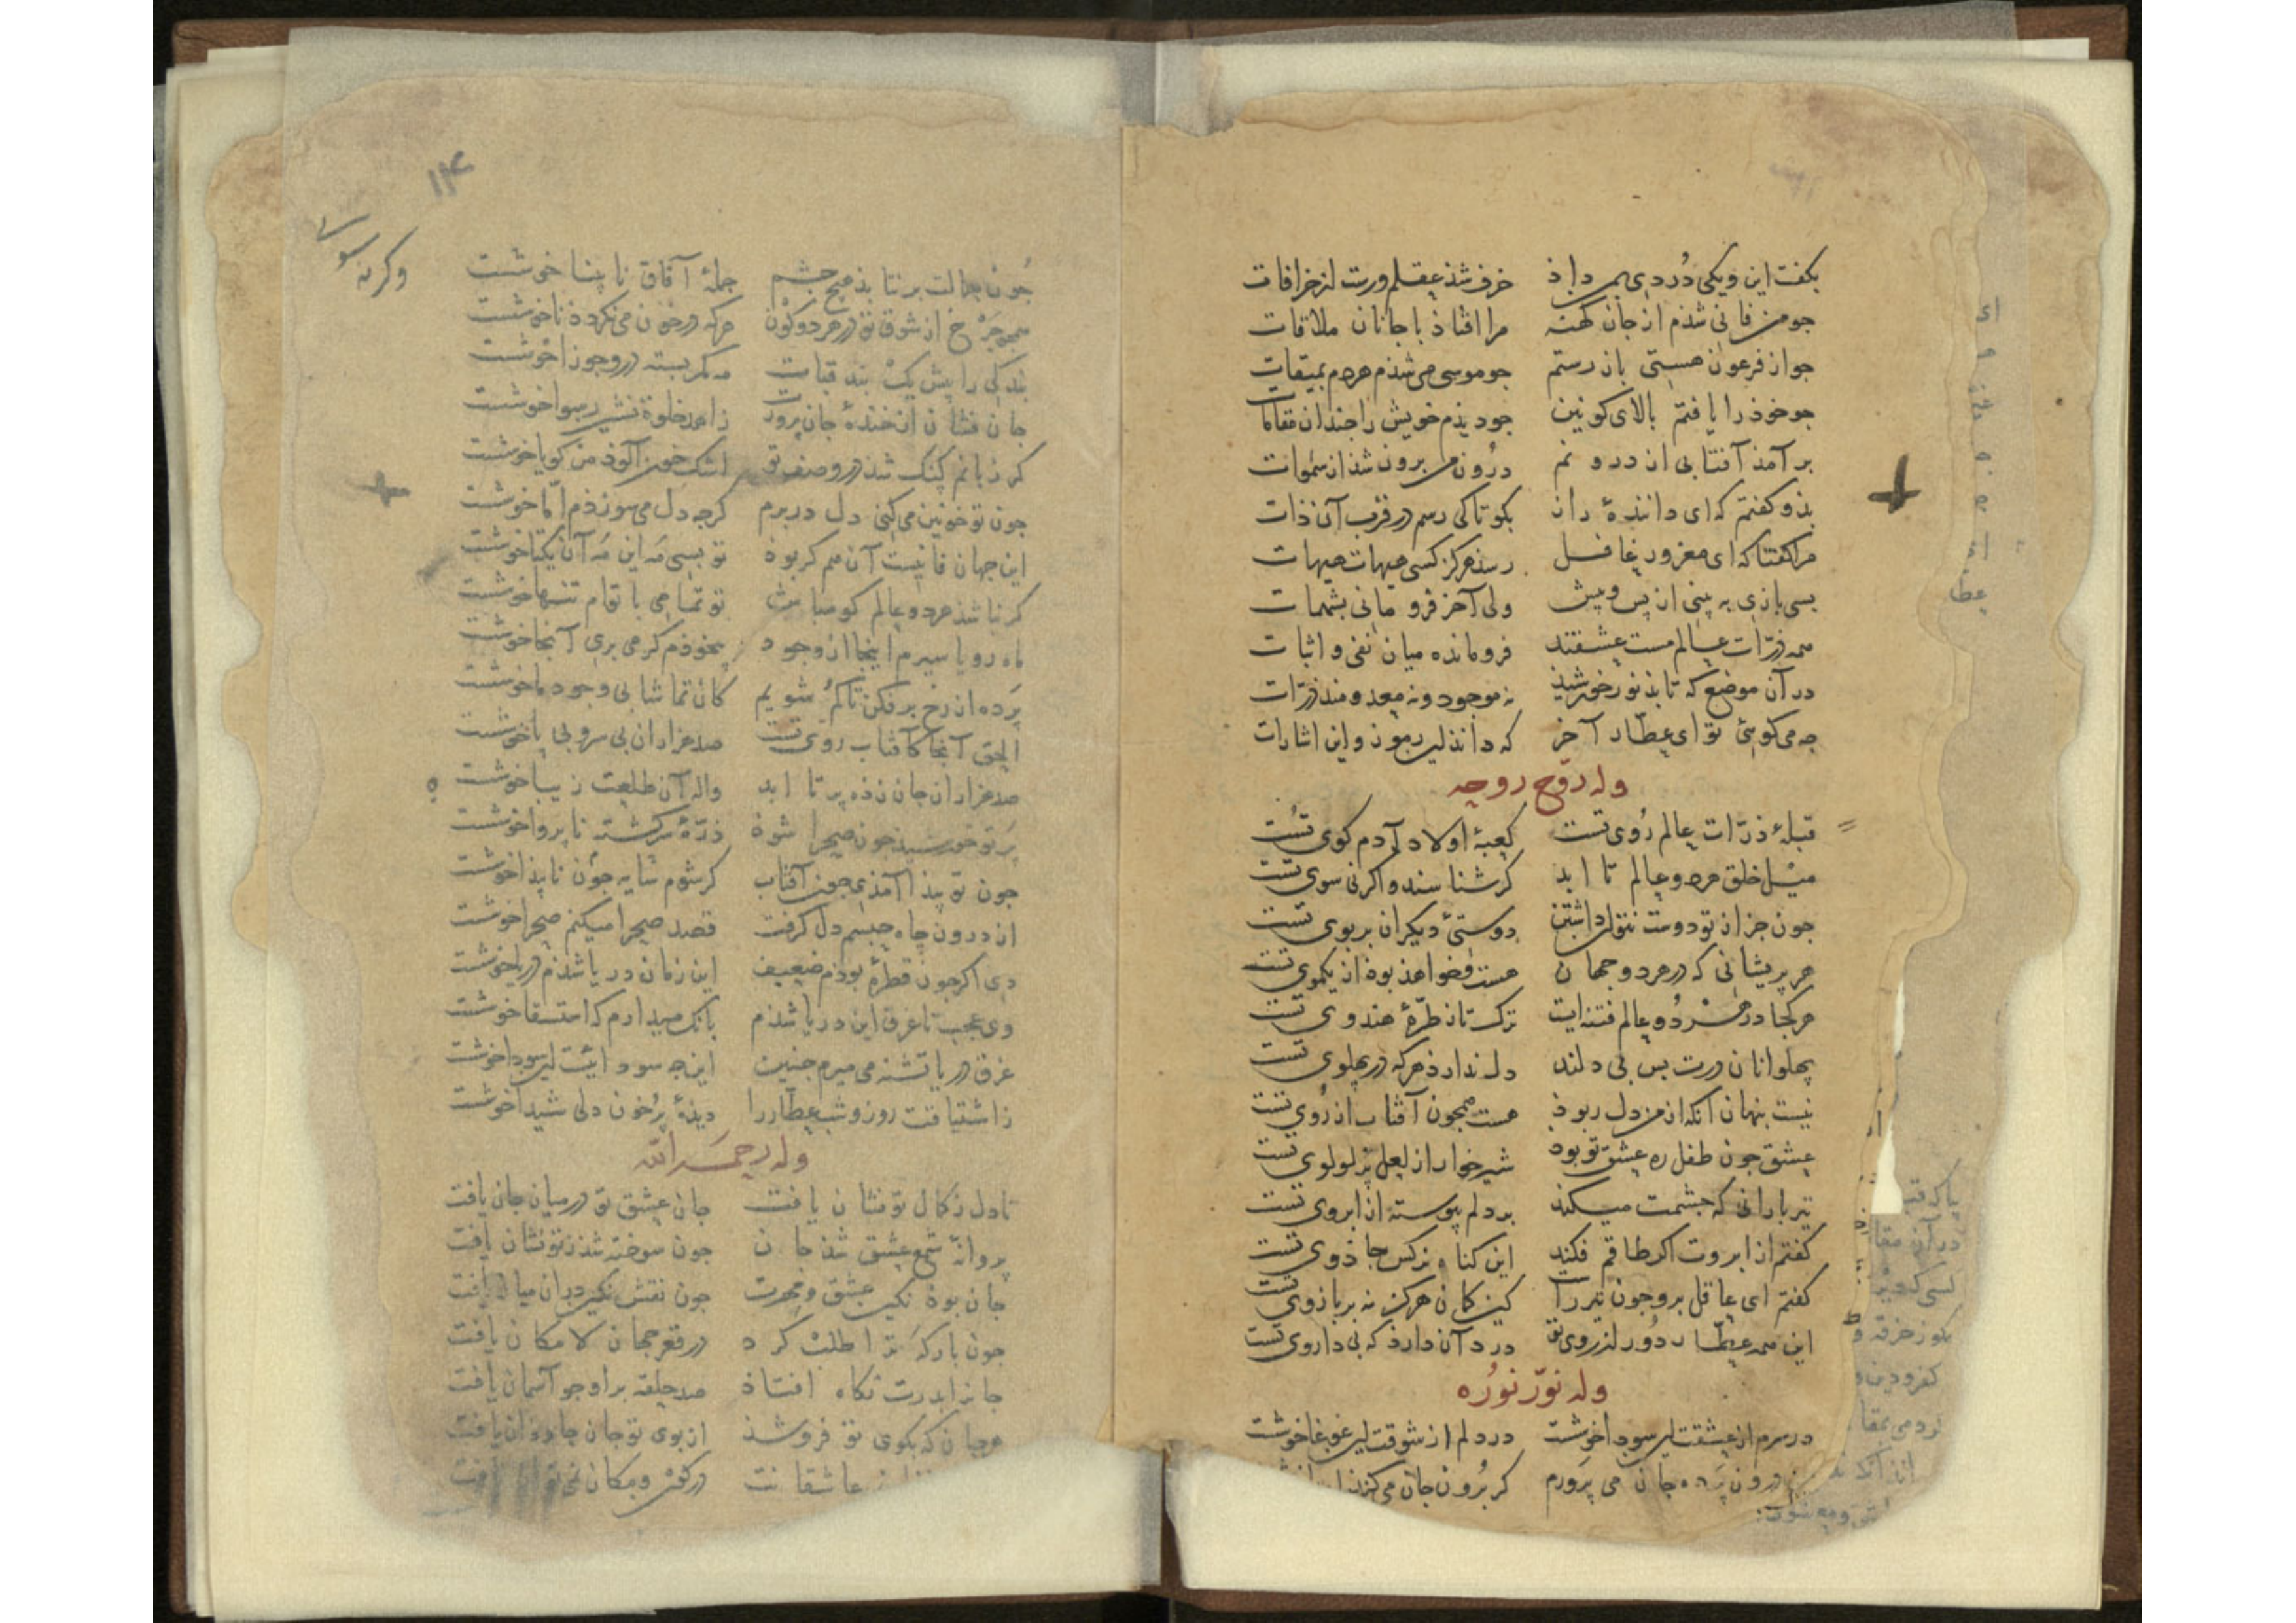 بکفت این ویکی دُردی بمن داذ خرف شذ عقلم ورست از خرافات
جو من فانی شذم از جان کهنه مرا افتاذ با جانان ملاقات
جو از فرعون هستی باز رستم جو موسی می شذم هردم بمیقات
جو خوذ را یافتم بالای کونین جو دیذم خویش را جندان مقامات
بر آمذ آفتابی از درونم درُون من برون شذ از سموات
بذو کفتم که ای دانندهٔ راز بکو تا کی رسم در قرب آن ذات
مرا کفتا که ای مغرور غافل رسذ هرکز کسی هیهات هیهات
بسی بازی به بینی از پس وپیش ولی آخر فرو مانی بشهمات
همه ذرّات عالم مست عشقند فرو مانده میان نفی و اثبات
در آن موضع که تابذ نور خورشیذ نه موجود و نه معدومند ذرّات
جه می کوئی تو ای عطّار آخر که دانذ این رموز و این اشارات
وله رَوّح روحه
قبلهٔ ذرّات عالم رُوی تست کعبهٔ اولاد آدم کوی تست
میْل خلق هردو عالم تا ابد کر شناسند و اکر نی سوی تست
جون جز از تو دوست نتوان داشتن دوستیٔ دیکران بر بوی تست
هر پریشانی که در هر دو جهان هست وخواهذ بوذ از یکموی تست
هر کجا در هر دُو عالم فتنه ایت ترک تاز طرّهٔ هندوی تست
پهلوانان درت بس بی دلند دل نداردذ هرکه در پهلوی تست
نیست پنهان آنکه از من دل ربوذ هست همجون آفتاب از رُوی تست
عشق جون طفل ره عشق تو بود شیرخوار از لعل پُر لولوی تست
تیر بارانی که جشمت میکنذ بر دلم پیوسته از ابروی تست
کفتم از ابروت اکر طاقم فکند این کناه نرکس جاذوی تست
کفتم ای عاقل برو جون تیر راست کین کمان هرکز نه بر بازوی تست
این همه عطّار دُور از روی تو درد آن دارذ که بی داروی تست
وله نوّر نورُه
در سرم از عشقت این سودا خوشست در دلم از شوقت این غوغا خوشست
درون پَرده جان می پَرورم کر برُون جان می کند
۱۴
وکر نه
جُون جمالت بر نتابذ هیچ جشم جملهٔ آفاق نا بینا خوشست
همجو جَرْخ از شوق تو در هر دو کوْن هرکه در خون می نکرددذ نا خوشست
بندکی را پیش یکْ بند قبات مه کمر بسته در و جوزا خوشست
جان فشان از خندهٔ جان پرورت زاهد خلوة نشین رسوا خوشست
کر زبانم کنک شذ در وصف تو اشک خون آلوذ من کویا خوشست
جون تو خونین می کنی دل در برم کرجه دل می سوزذم امّا خوشست
این جهان فانیست آن هم کر بوذ تو بسی مَه این مَه آن یکتا خوشست
کر نباشذ هردو عالم کو مباش تو تمامی با توام تنها خوشست
ماه رویا سیرم اینجا از وجود بیخوذم کر می بری آنجا خوشست
پَرده از رخ بر فکن تا کمُ شویم کان تماشا بی وجود ما خوشست
الحق آنجا کآفتاب روی تست صد هزاران بی سر و بی پا خوشست
صد هزاران جان زذه پر تا ابد واله آن طلعت زیبا خوشست
پَرتو خورشیذ جون صحرا شوذ ذرّهٔ سرکشته نا پروا خوشست
جون تو پیذا آمذی جون آفتاب کر شوم سایه جون نا پیذا خوشست
از درون جاه جسمم دل کرفت قصد صحرا میکنم صحرا خوشست
دی اکر جون قطرهٔ بوذم ضعیف این زمان دریا شذم دریا خوشست
وی عجب تا غرق این دریا شذم بانک میدارم که استسقا خوشست
غرق دریا تشنه می میرم جنین این جه سودائیست این سودا خوشست
ز اشتیاقت روز وشب عطّار را دیذهٔ پُر خون دلی شیدا خوشست
وله رحمه الله
تا دل ز کمال تو نشان یافت جان عشق تو در میان جان یافت
پروانهٔ شمع عشق شذ جان جون سوخته شذ ز تو نشان یافت
جان بوذ نکین عشق و مهرت جون نقش نکین در ان میان یافت
جون بارکَه ترا طلبْ کرد در قعر جهان لا مکان یافت
جانرا بدرت نکاه افتاذ صد حلقه بر او جو آسمان یافت
هر جان که بکوی تو فرو شذ از بوی تو جان جاودان یافت
عاشقانت در کون ومکان